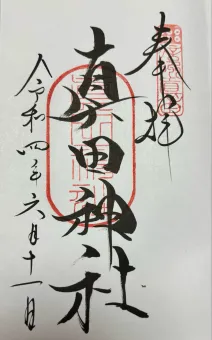 奉拝
真田神社
令和四年六月十一月